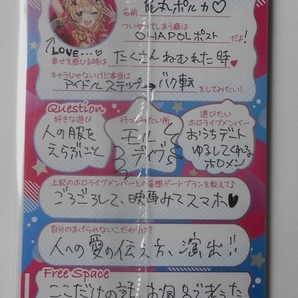 名前 尾丸ポルカ♡
ついやってしまう癖は
OHAPOLポスト だよ!
LOVE...♡
幸せを感じる時は たくさんねむれた時
キャラじゃないけど本当は
アイドルステップ→バク転
をしてみたい!
Question
好きな遊び
人の服を
えらぶこと
行ってみたい所
モル
ディヴ
遊びたい
ホロライブメンバー
おうちデート
ゆるしてくれる
ホロメン
上記のホロライブメンバーとの妄想デートプランを教えて♪
ごろごろして、映画みてスマホ♡
自分のまげられないこだわりは?
人への愛の伝え方、演出!!
Free Space
ここだけの話、お風呂で考えた